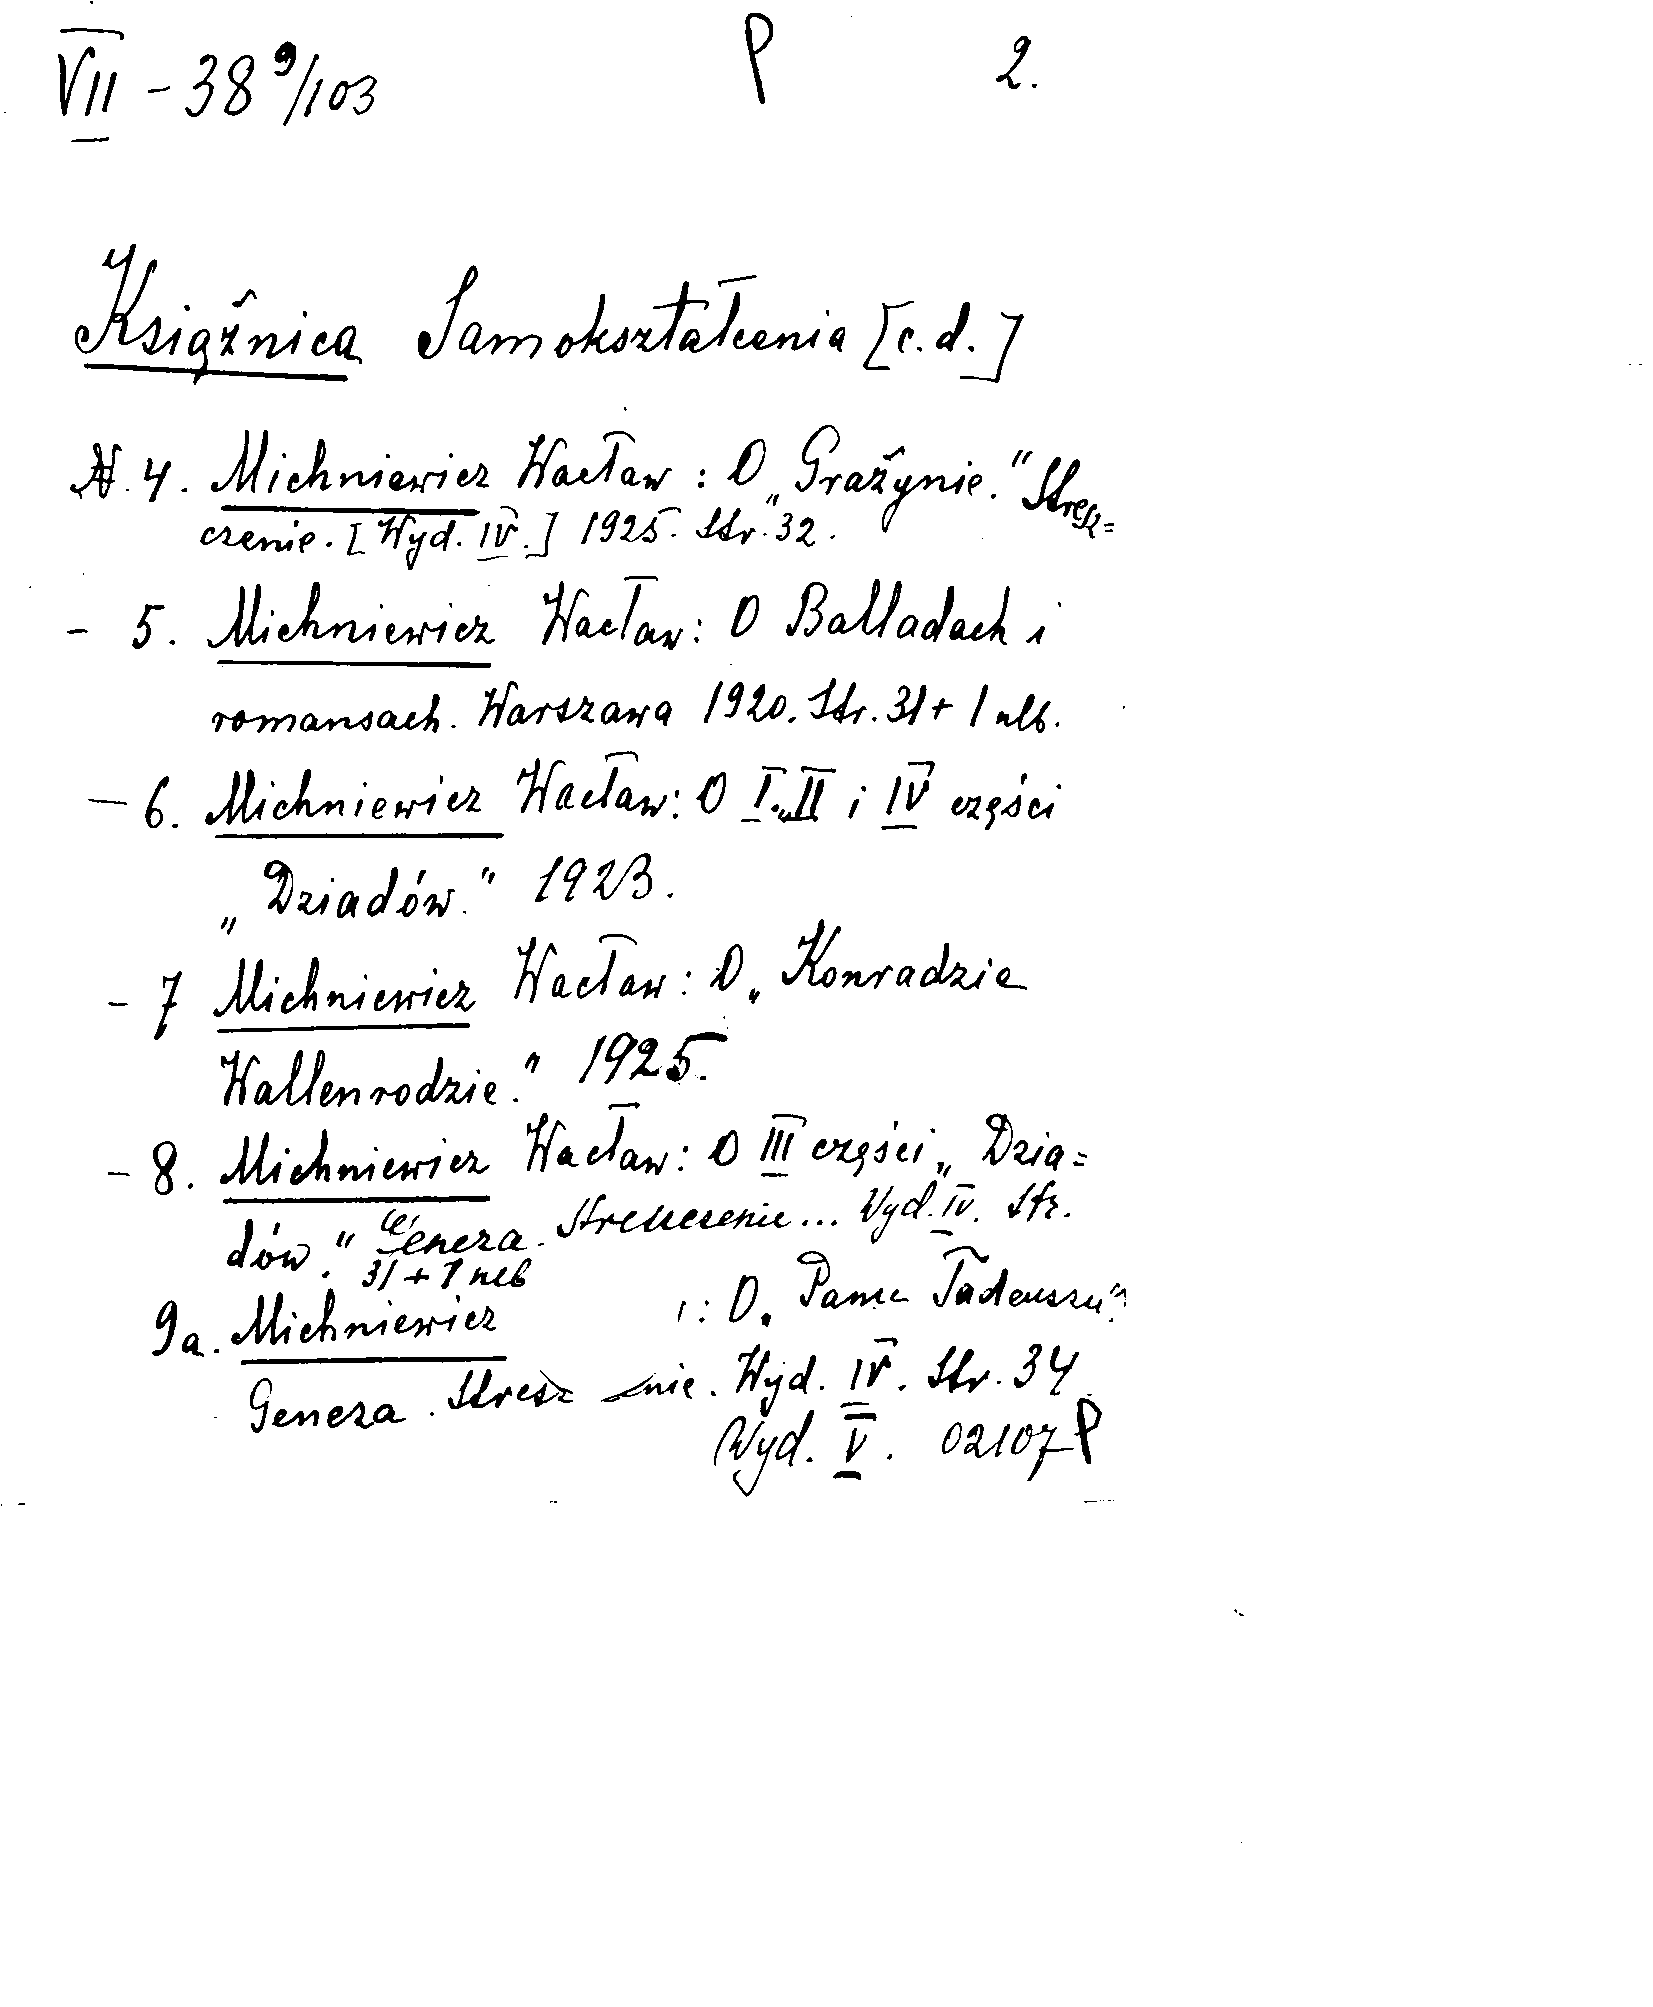 VII - 38 9/103 P 2.
Książnica Samokształcenia [c.d.]
N. 4. Michniewicz Wacław : O „Grażynie." Stresz=
czenie. [Wyd. IV.] 1925. Str. 32.
- 5. Michniewicz Wacław: O Balladach i
romansach. Warszawa 1920. Str. 31 + 1 nlb.
- 6. Michniewicz Wacław: O I, II i IV części
„Dziadów." 1923.
- 7 Michniewicz Wacław: O „Konradzie
Wallenrodzie." 1925.
- 8. Michniewicz Wacław: O III części „Dzia=
dów." Geneza. Streszczenie... Wyd. IV. Str.
31 + 1 nlb
9a. Michniewicz : O „Panu Tadeuszu"
Geneza. Stresz nie. Wyd. IV. Str. 34
Wyd. V. 02107 P